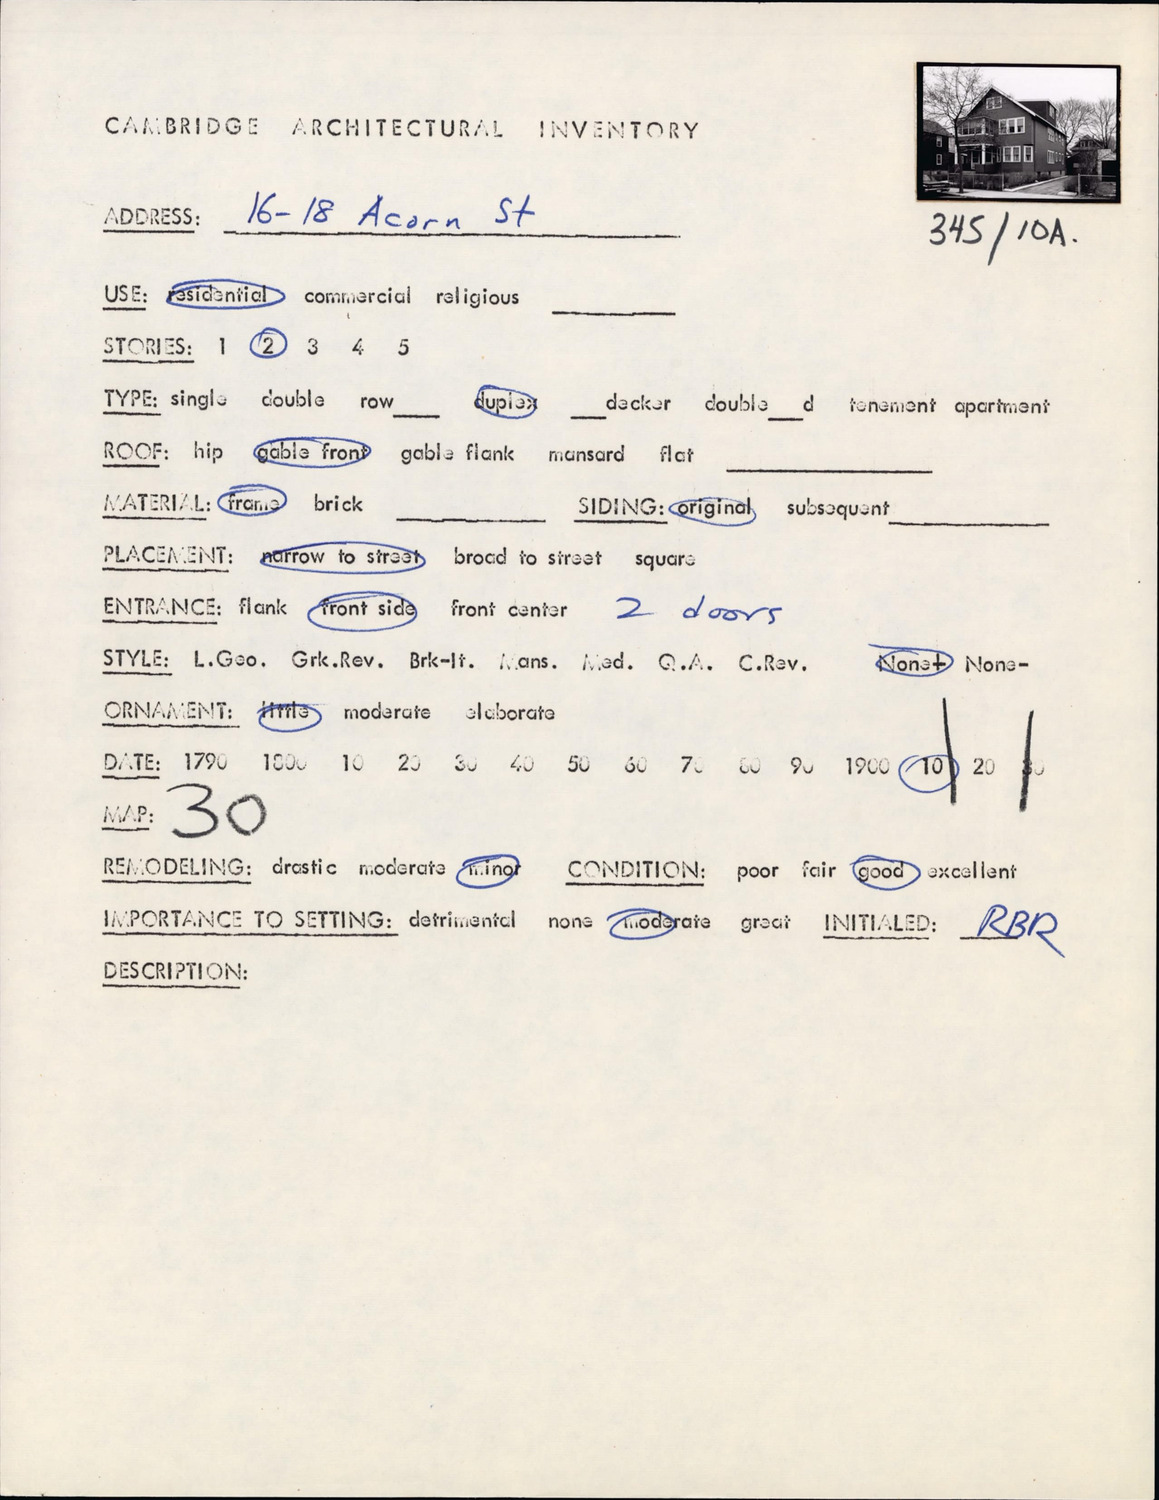 CAMBRIDGE ARCHITECTURAL INVENTORY
345/10A.
ADDRESS: 16-18 Acorn St
USE: residential commercial religious
STORIES: 1 2 3 4 5
TYPE: single double row___ duplex ___decker double___d tenement apartment
ROOF: hip gable front gable flank mansard flat
MATERIAL: frame brick SIDING: original subsequent
PLACEMENT: narrow to street broad to street square
ENTRANCE: flank front side front center 2 doors
STYLE: L.Geo. Grk.Rev. Brk-It. Mans. Med. Q.A. C.Rev. None+ None-
ORNAMENT: little moderate elaborate
DATE: 1790 1800 10 20 30 40 50 60 70 80 90 1900 10 20 30
MAP: 30
REMODELING: drastic moderate minor CONDITION: poor fair good excellent
IMPORTANCE TO SETTING: detrimental none moderate great INITIALED: RBR
DESCRIPTION: